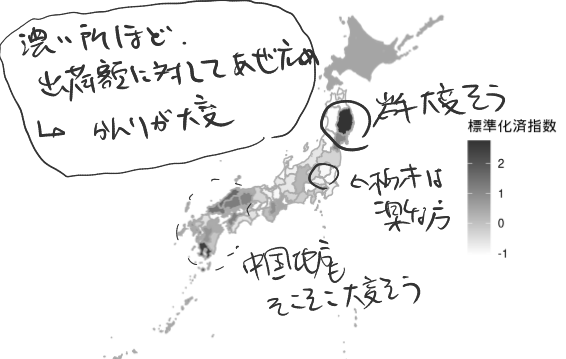 濃い所ほど.
出荷額に対してあぜ広め
↳ かんりが大変
岩手大変そう
標準化済指数
2
1
0
-1
←栃木は
楽な方
中国地方も
そこそこ大変そう